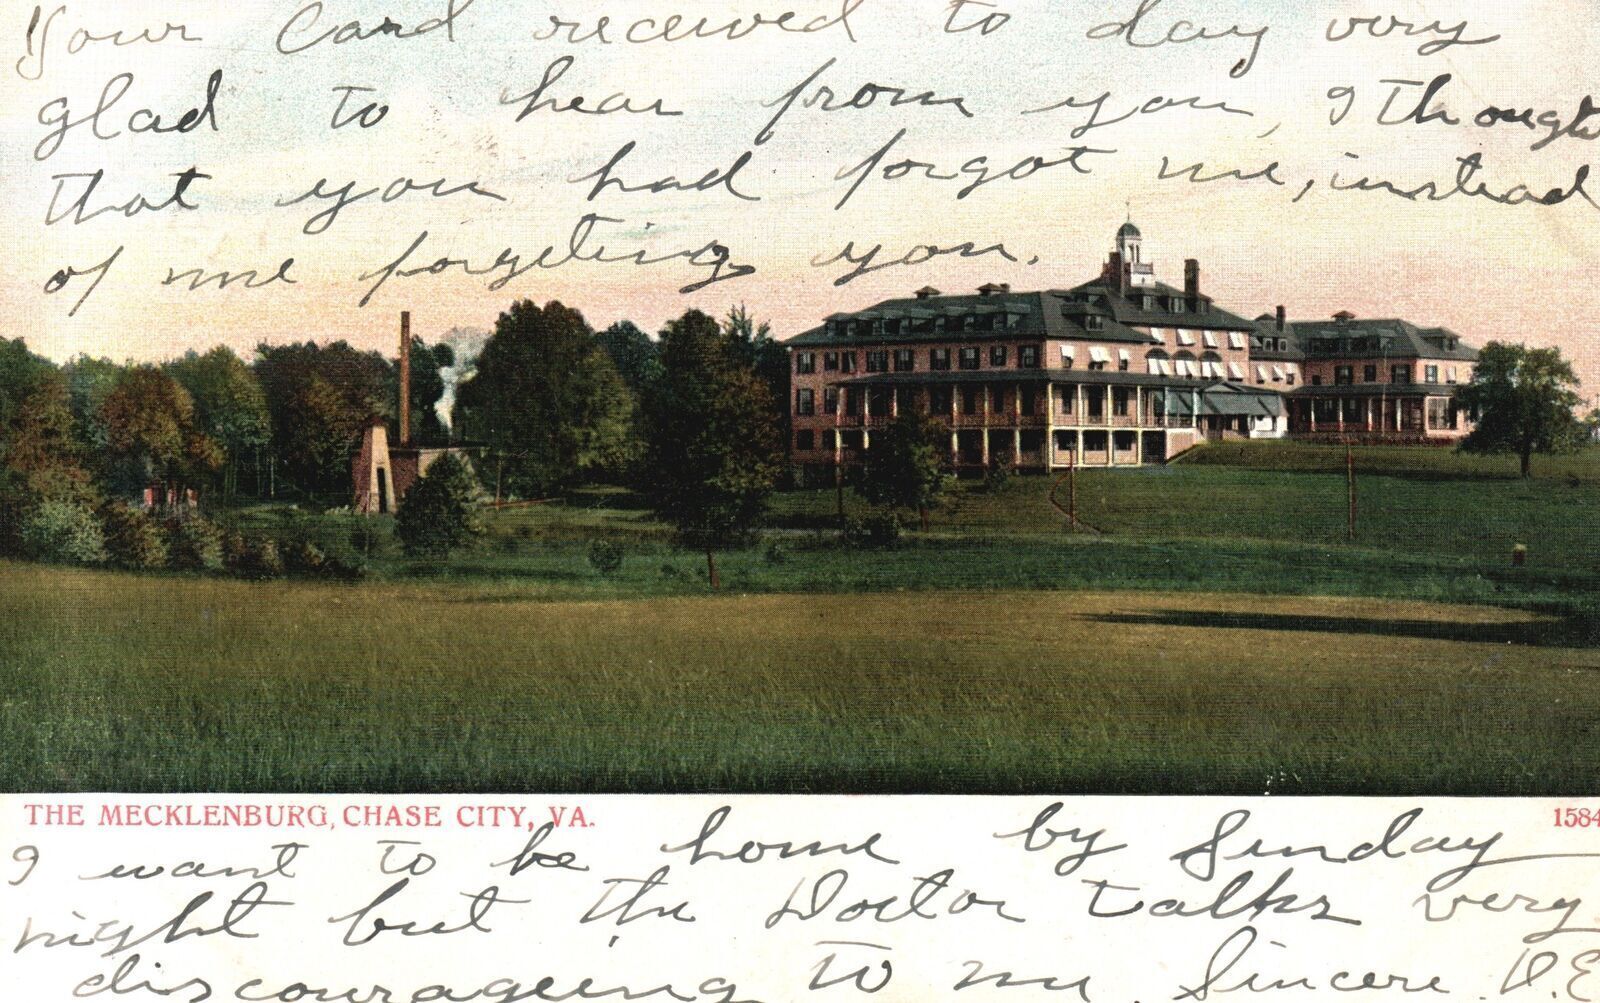 Your Card received to day very
glad to hear from you, I thought
that you had forgot me, instead
of me forgeting you.
THE MECKLENBURG, CHASE CITY, VA.
1584
I want to be home by Sunday
night but the Doctor talks very
discourageing to me. Sincere D.E